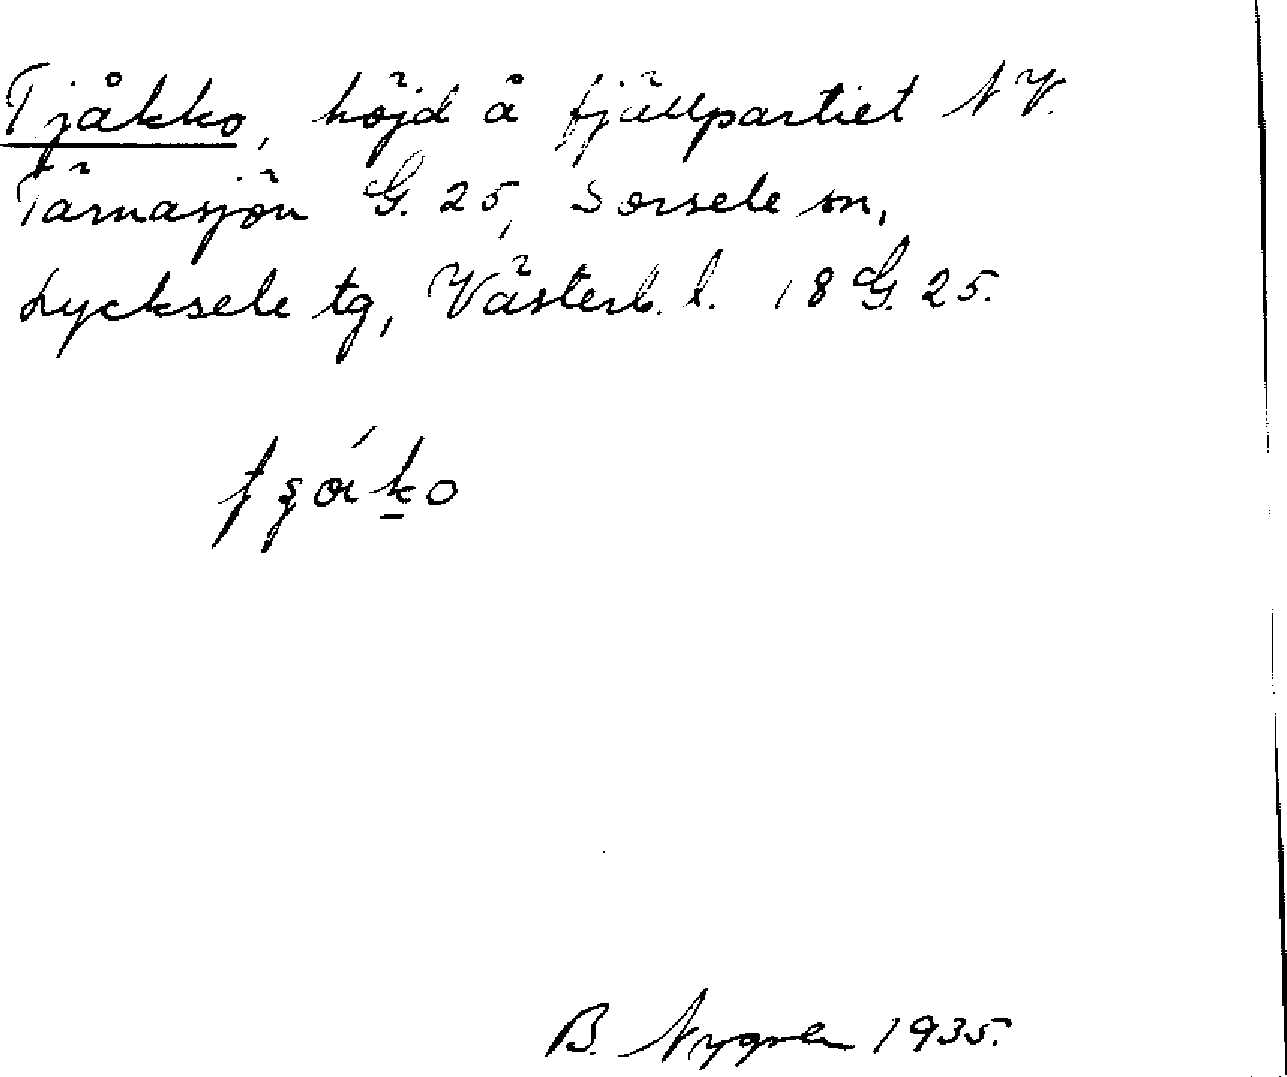 Tjåkko, höjd å fjällpartiet N V.
Tärnasjön G. 25, Sorsele sn,
Lycksele tg, Västerb. l. 18 G. 25.
B. Nygren 1935.